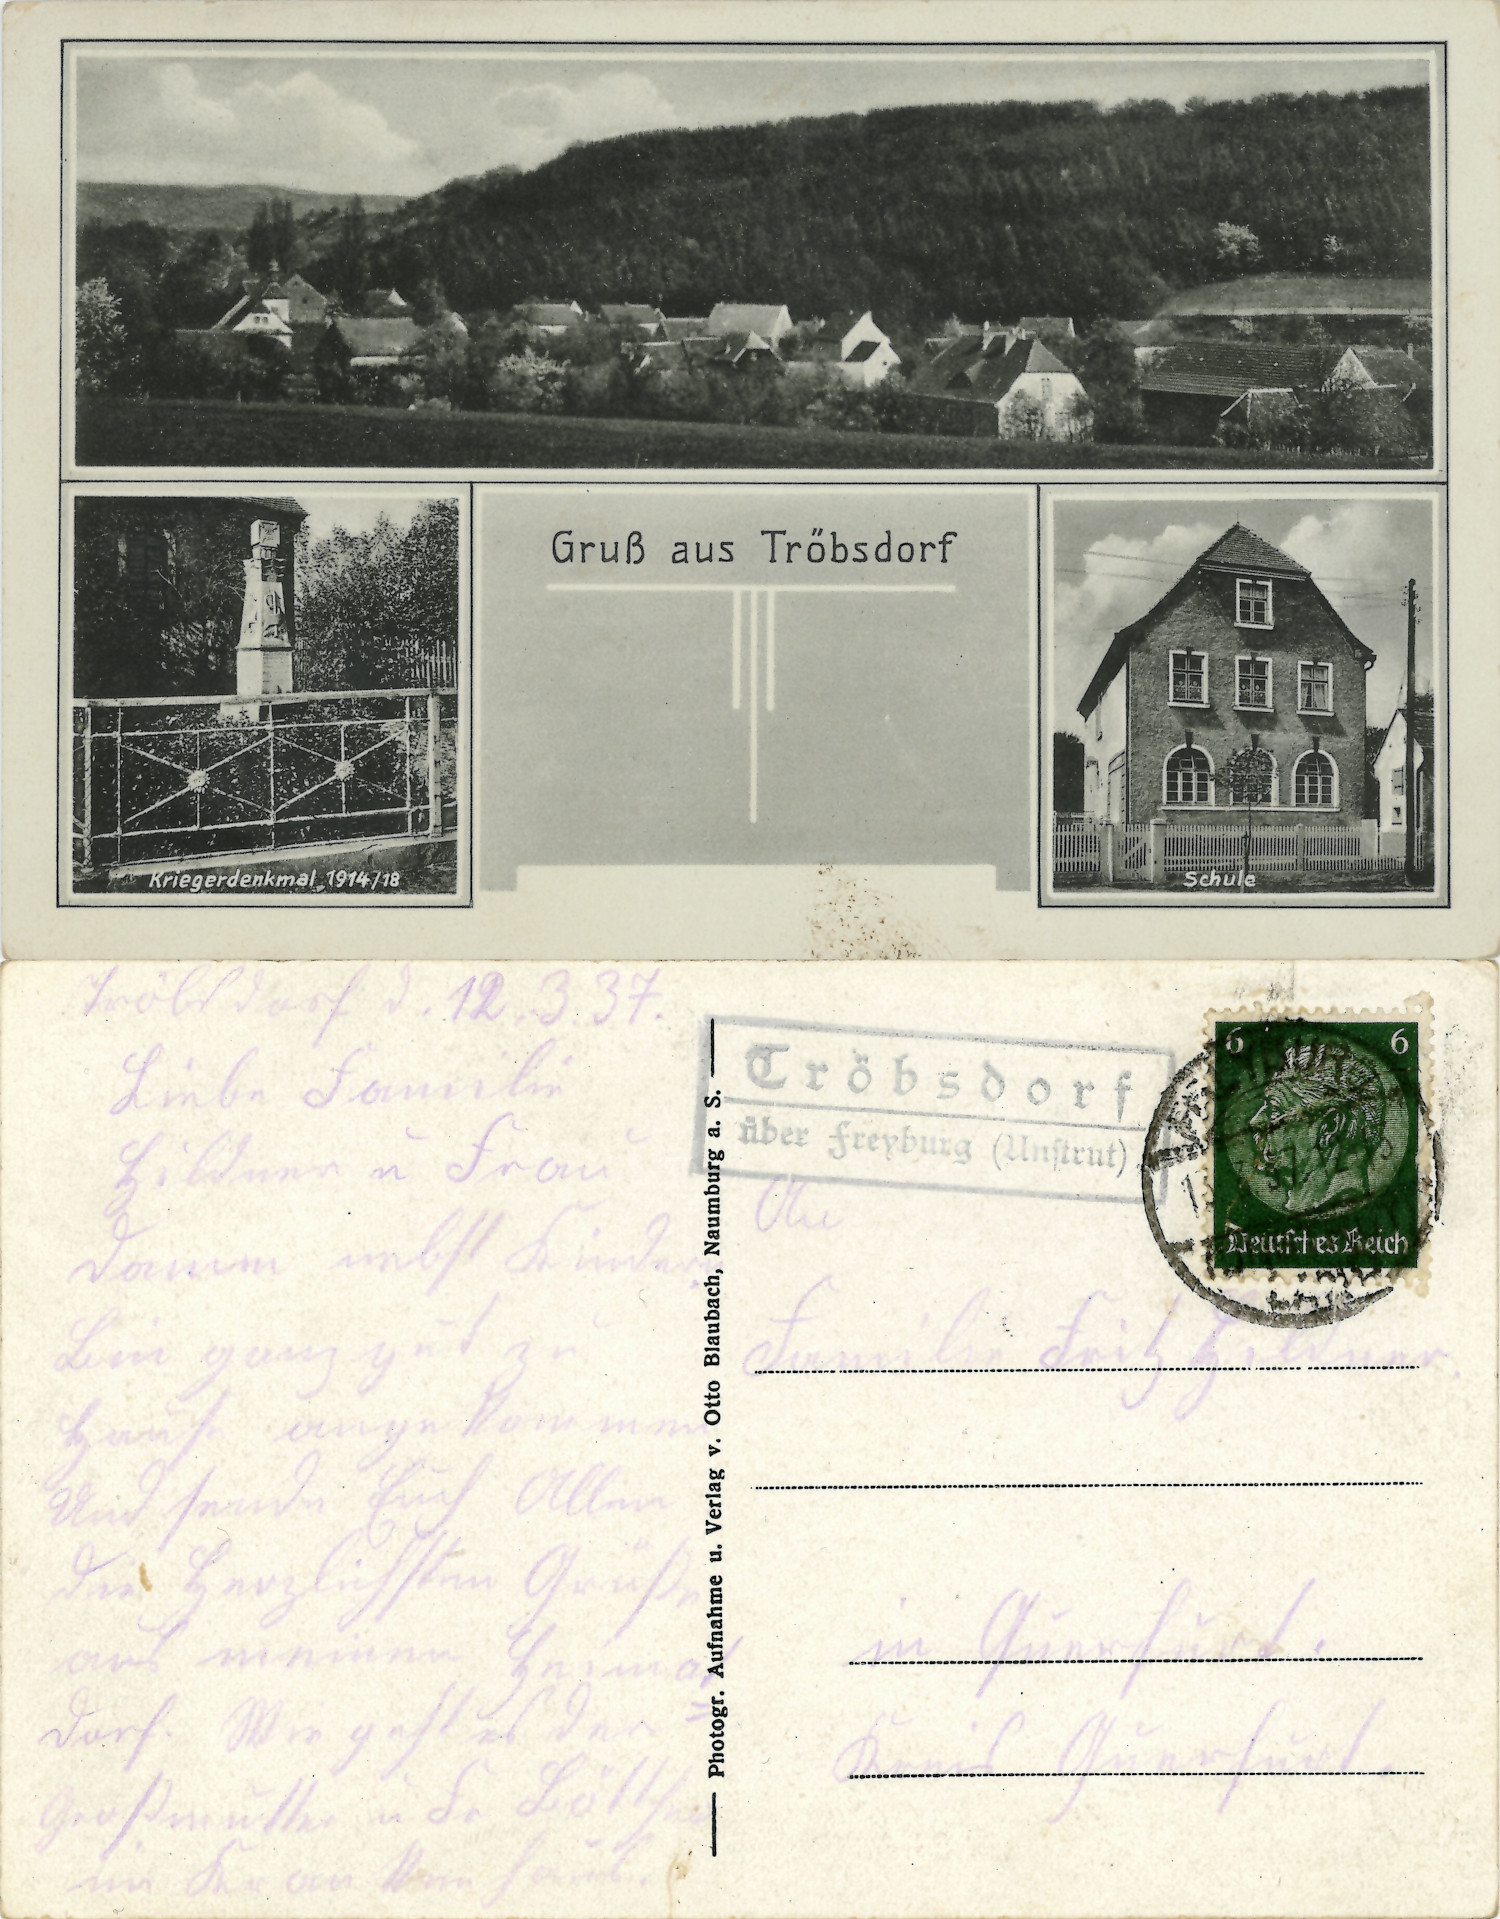 Gruß aus Tröbsdorf
Kriegerdenkmal 1914/18
Schule
Tröbsdorf d. 12.3.37.
Liebe Familie
Hildner u Frau
Damm nebst Kindern
Bin ganz gut zu
Hause angekommen
Und sende Euch Allen
die Herzlichsten Grüße
aus meinen Heimat
dorf. Wie geht es der
Großmutter u Fr
im Krankenhaus.
Photogr. Aufnahme u. Verlag v. Otto Blaubach, Naumburg a. S.
Tröbsdorf
über Freyburg (Unstrut)
6 6
Deutsches Reich
An
Familie Fritz Hildner.
in Querfurt.
Kreis Querfurt.